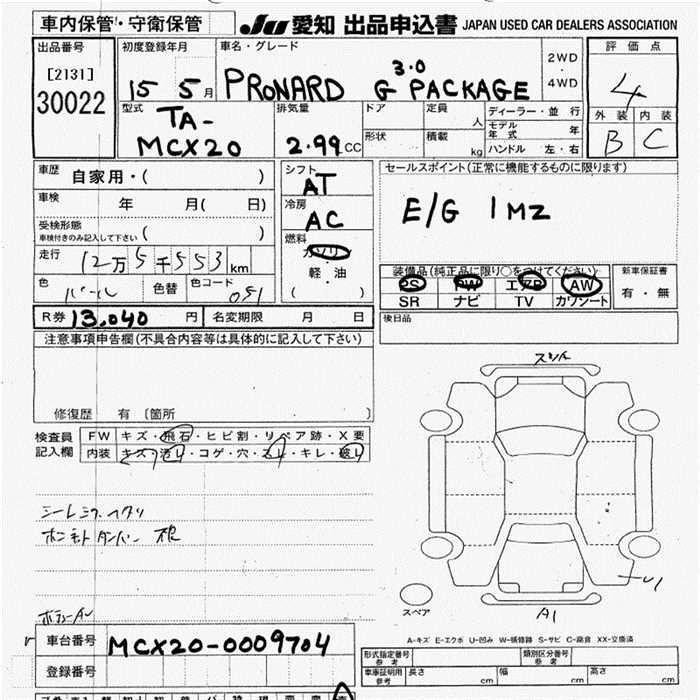 車内保管・守衛保管
JU 愛知 出品申込書 JAPAN USED CAR DEALERS ASSOCIATION
出品番号
[2131]
30022
初度登録年月
15 5 月
車名・グレード
PRONARD 3.0 G PACKAGE
2WD
・
4WD
評価点
4
外装 内装
B C
型式
TA-
MCX20
排気量
2.99 CC
ドア
形状
定員
人
積載
kg
ディーラー・並行
モデル年式 年
ハンドル 左・右
車歴
自家用・( )
車検 年 月( 日)
受検形態
車検付きのみ記入して下さい ( )
走行 12万5千553 km
色 パール 色替 色コード 051
シフト
AT
冷房
AC
燃料
ガソリン
・
軽・油
( )
セールスポイント(正常に機能するものに限ります)
E/G 1MZ
装備品(純正品に限り○をつけてください)
PS PW エアB AW
SR ナビ TV カワシート
新車保証書
有・無
R券 13,040 円 名変期限 月 日
後日品
注意事項申告欄(不具合内容等は具体的に記入して下さい)
修復歴 有〔箇所 〕
検査員
記入欄
FW キズ・飛石・ヒビ割・リペア跡・X要
内装 キズ・汚レ・コゲ・穴・スレ・キレ・破レ
スペア
A1
A-キズ E-エクボ U-凹み W-補修跡 S-サビ C-腐食 XX-交換済
車台番号 MCX20-0009704
登録番号
形式指定番号
参考
類別区分番号
参考
車庫証明用
参考
長さ cm 幅 cm 高さ cm